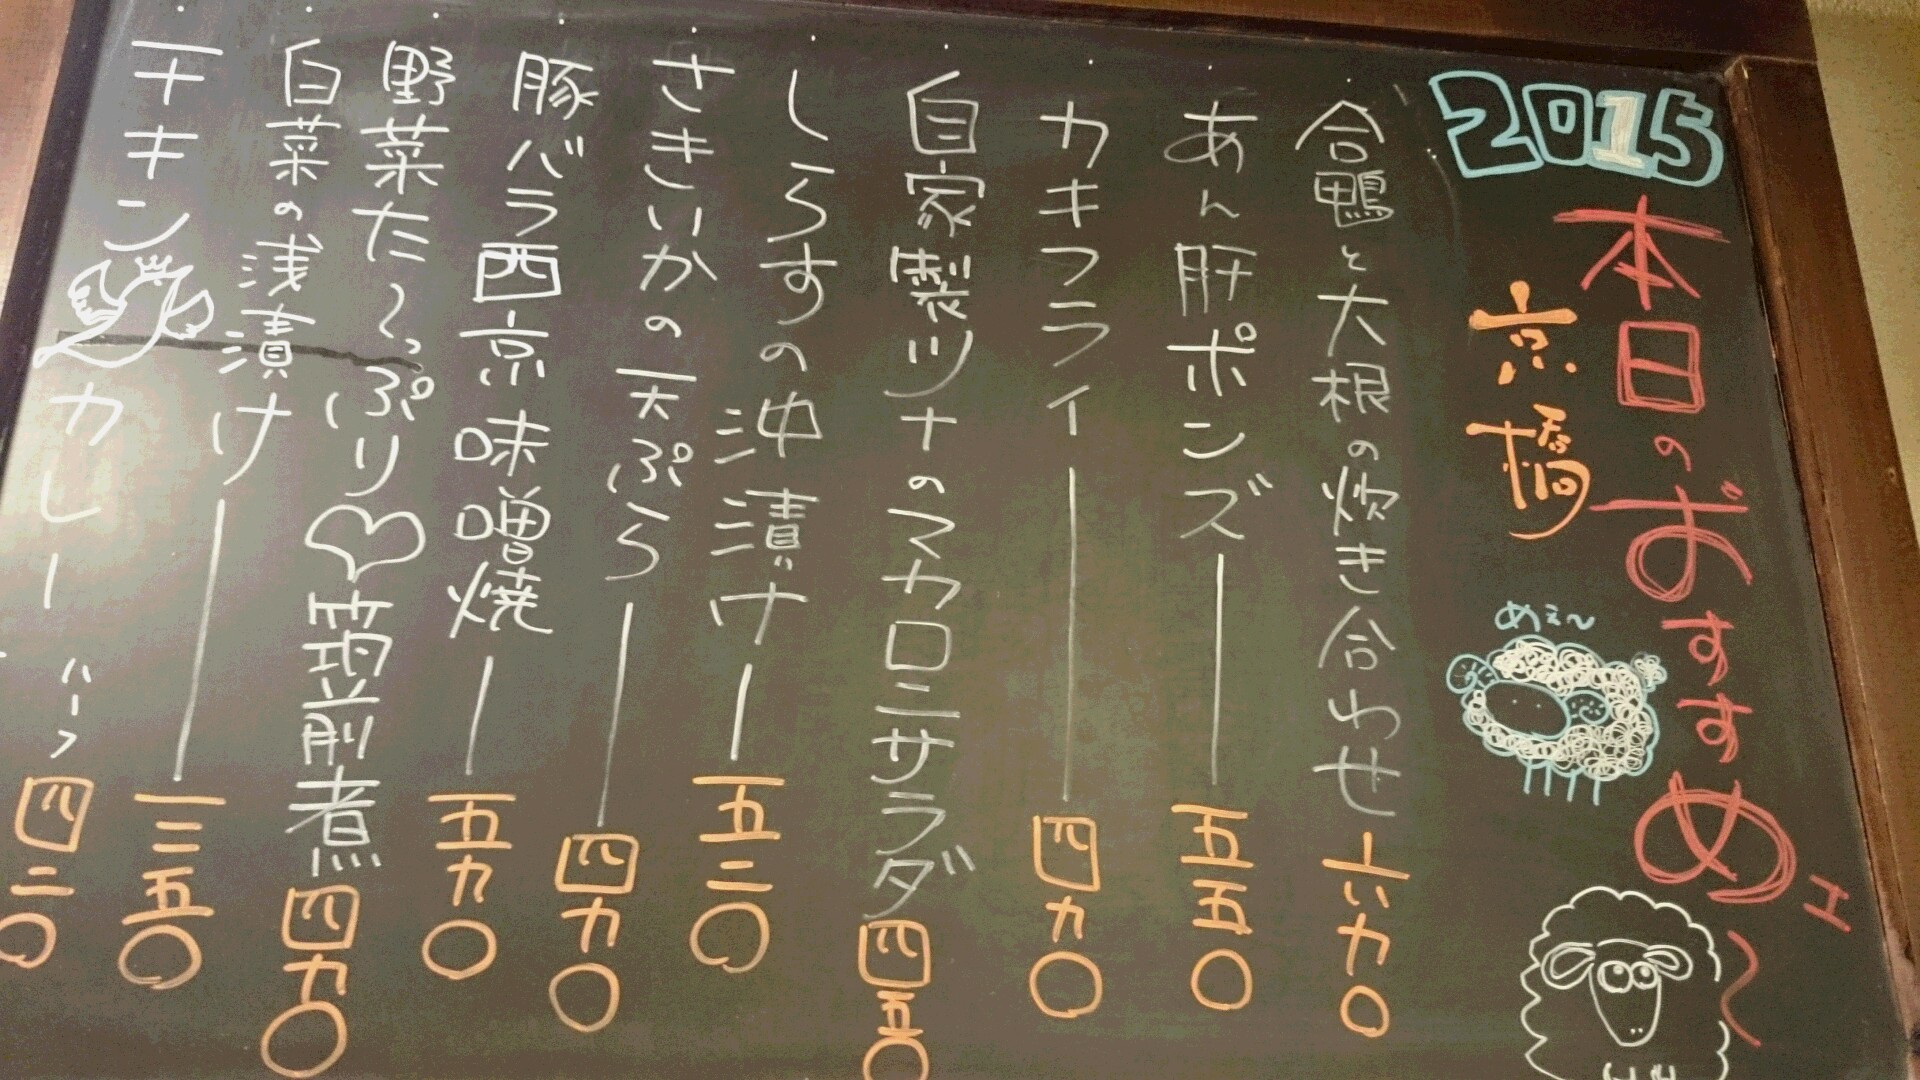 2015
本日のおすすめェ〜
京橋
めぇ〜
合鴨と大根の炊き合わせ 六九〇
あん肝ポンズ 五五〇
カキフライ 四九〇
自家製ツナのマカロニサラダ 四五〇
しらすの沖漬け 五二〇
さきいかの天ぷら 四九〇
豚バラ西京味噌焼 五九〇
野菜た〜っぷり♡筑前煮 四九〇
白菜の浅漬け 三五〇
チキンカレー ハーフ 四二〇